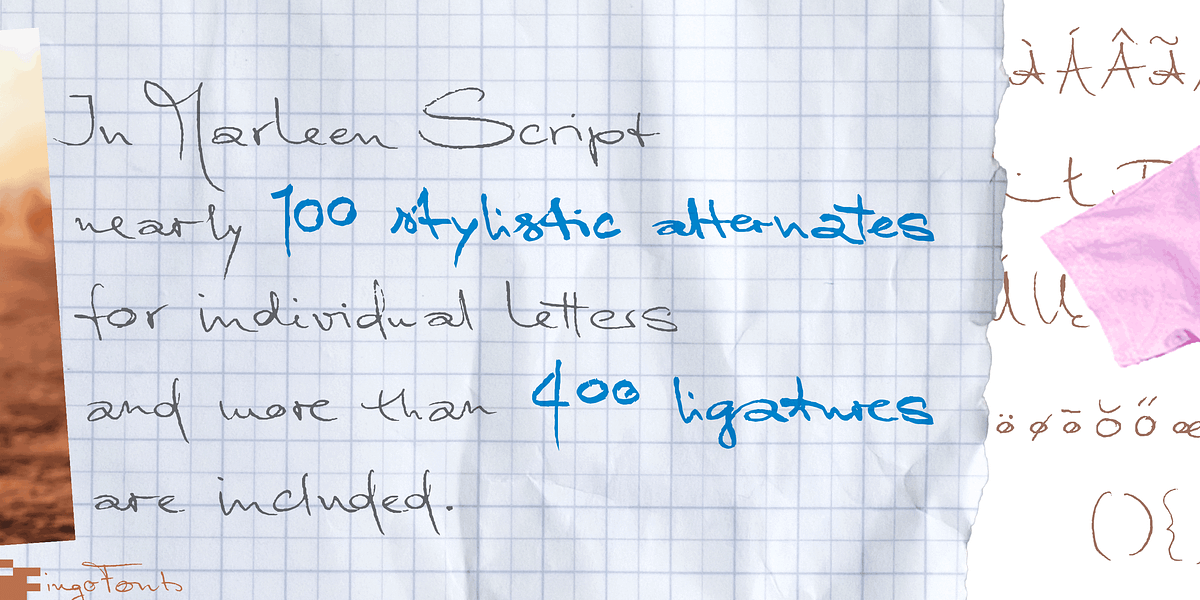 In Marleen Script
nearly 100 stylistic alternates
for individual letters
and more than 400 ligatures
are included.
ingoFonts
À Á Â Ã
t
Ų
ö ø ō ŏ ő œ
( ) {